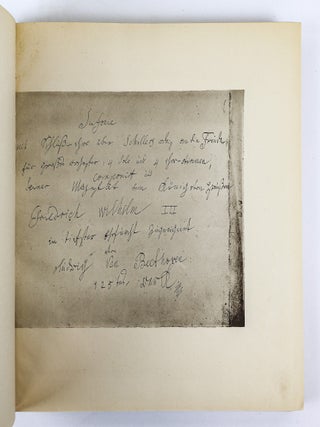 Sinfonie
mit Schluß chor über Schillers ode, an die Freude,
für großes orchester, 4 Solo und 4 chor-stimmen,
componirt u.
Seiner Majestät dem König von Preußen
Friedrich Wilhelm III
in tiefster Ehrfurcht zugeeignet
von
Ludwig van Beethoven
125tes Werk